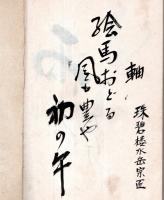 珠碧楼水岳宗匠
軸
絵馬おどる
風も豊や
初の午